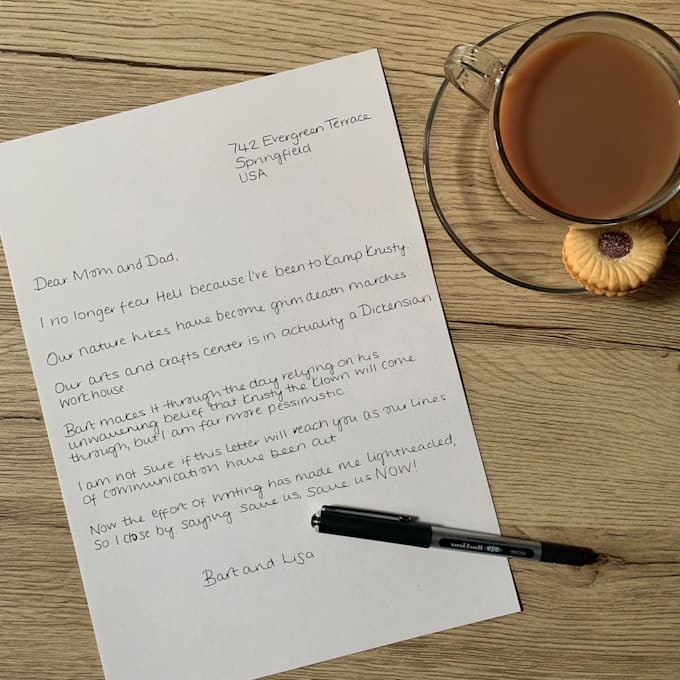 742 Evergreen Terrace
Springfield
USA
Dear Mom and Dad,
I no longer fear Hell because I've been to Kamp Krusty.
Our nature hikes have become grim death marches.
Our arts and crafts center is in actuality a Dickensian
workhouse.
Bart makes it through the day relying on his
unwavering belief that Krusty the Klown will come
through, but I am far more pessimistic.
I am not sure if this letter will reach you as our lines
of communication have been cut.
Now the effort of writing has made me lightheaded,
so I close by saying save us, save us NOW!
Bart and Lisa
uni-ball eye micro